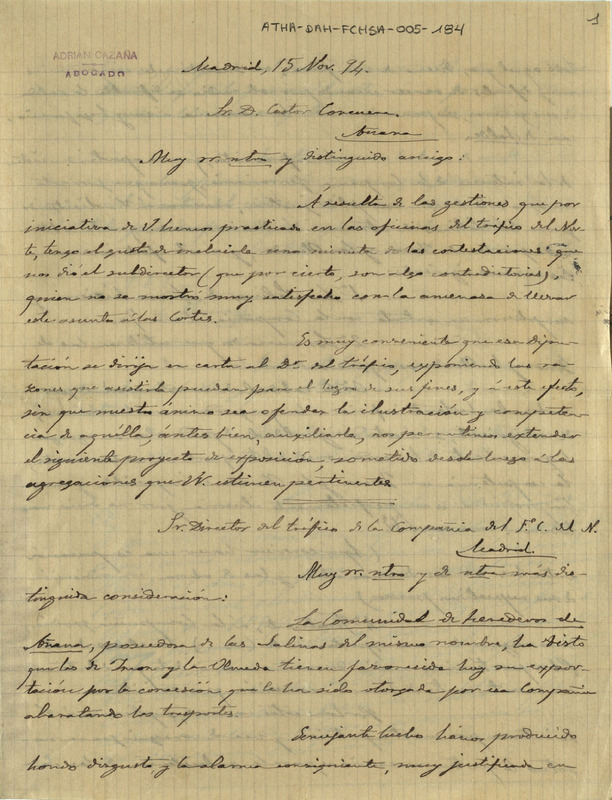 1
ATHA-DAH-FCHSA-005-184
ADRIAN CAZAÑA
ABOGADO
Madrid, 15 Nov. 94.
Sr. D. Castor Corcuera.
Añana
Muy sr. ntro y distinguido amigo:
Á resulta de las gestiones que por
iniciativa de V. hemos practicado en las oficinas del tráfico del Nor-
te, tengo el gusto de incluirle una minuta de las contestaciones que
nos dió el subdirector (que por cierto, son algo contradictorias),
quien no se mostró muy satisfecho con la amenaza de llevar
este asunto á las Córtes.
Es muy conveniente que esa dipu-
tación se dirija en carta al Dr. del tráfico, exponiendo las ra-
zones que asistirla puedan para el logro de sus fines, y á este efecto,
sin que nuestro ánimo sea ofender la ilustración y competen-
cia de aquélla, ántes bien, auxiliarla, nos permitimos extender
el siguiente proyecto de exposición, sometido desde luego á las
agregaciones que VV. estimen pertinentes
Sr. Director del tráfico de la Compañía del F. C. del N.
Madrid.
Muy sr. ntro y de ntra más dis-
tinguida consideración:
La Comunidad de herederos de
Añana, poseedora de las Salinas del mismo nombre, ha visto
que las de Imon y la Olmeda tienen favorecida hoy su expor-
tación por la concesión que le ha sido otorgada por esa Compañía
abaratando los trasportes.
Semejante hecho hános producido
hondo disgusto, y la alarma consiguiente, muy justificada en